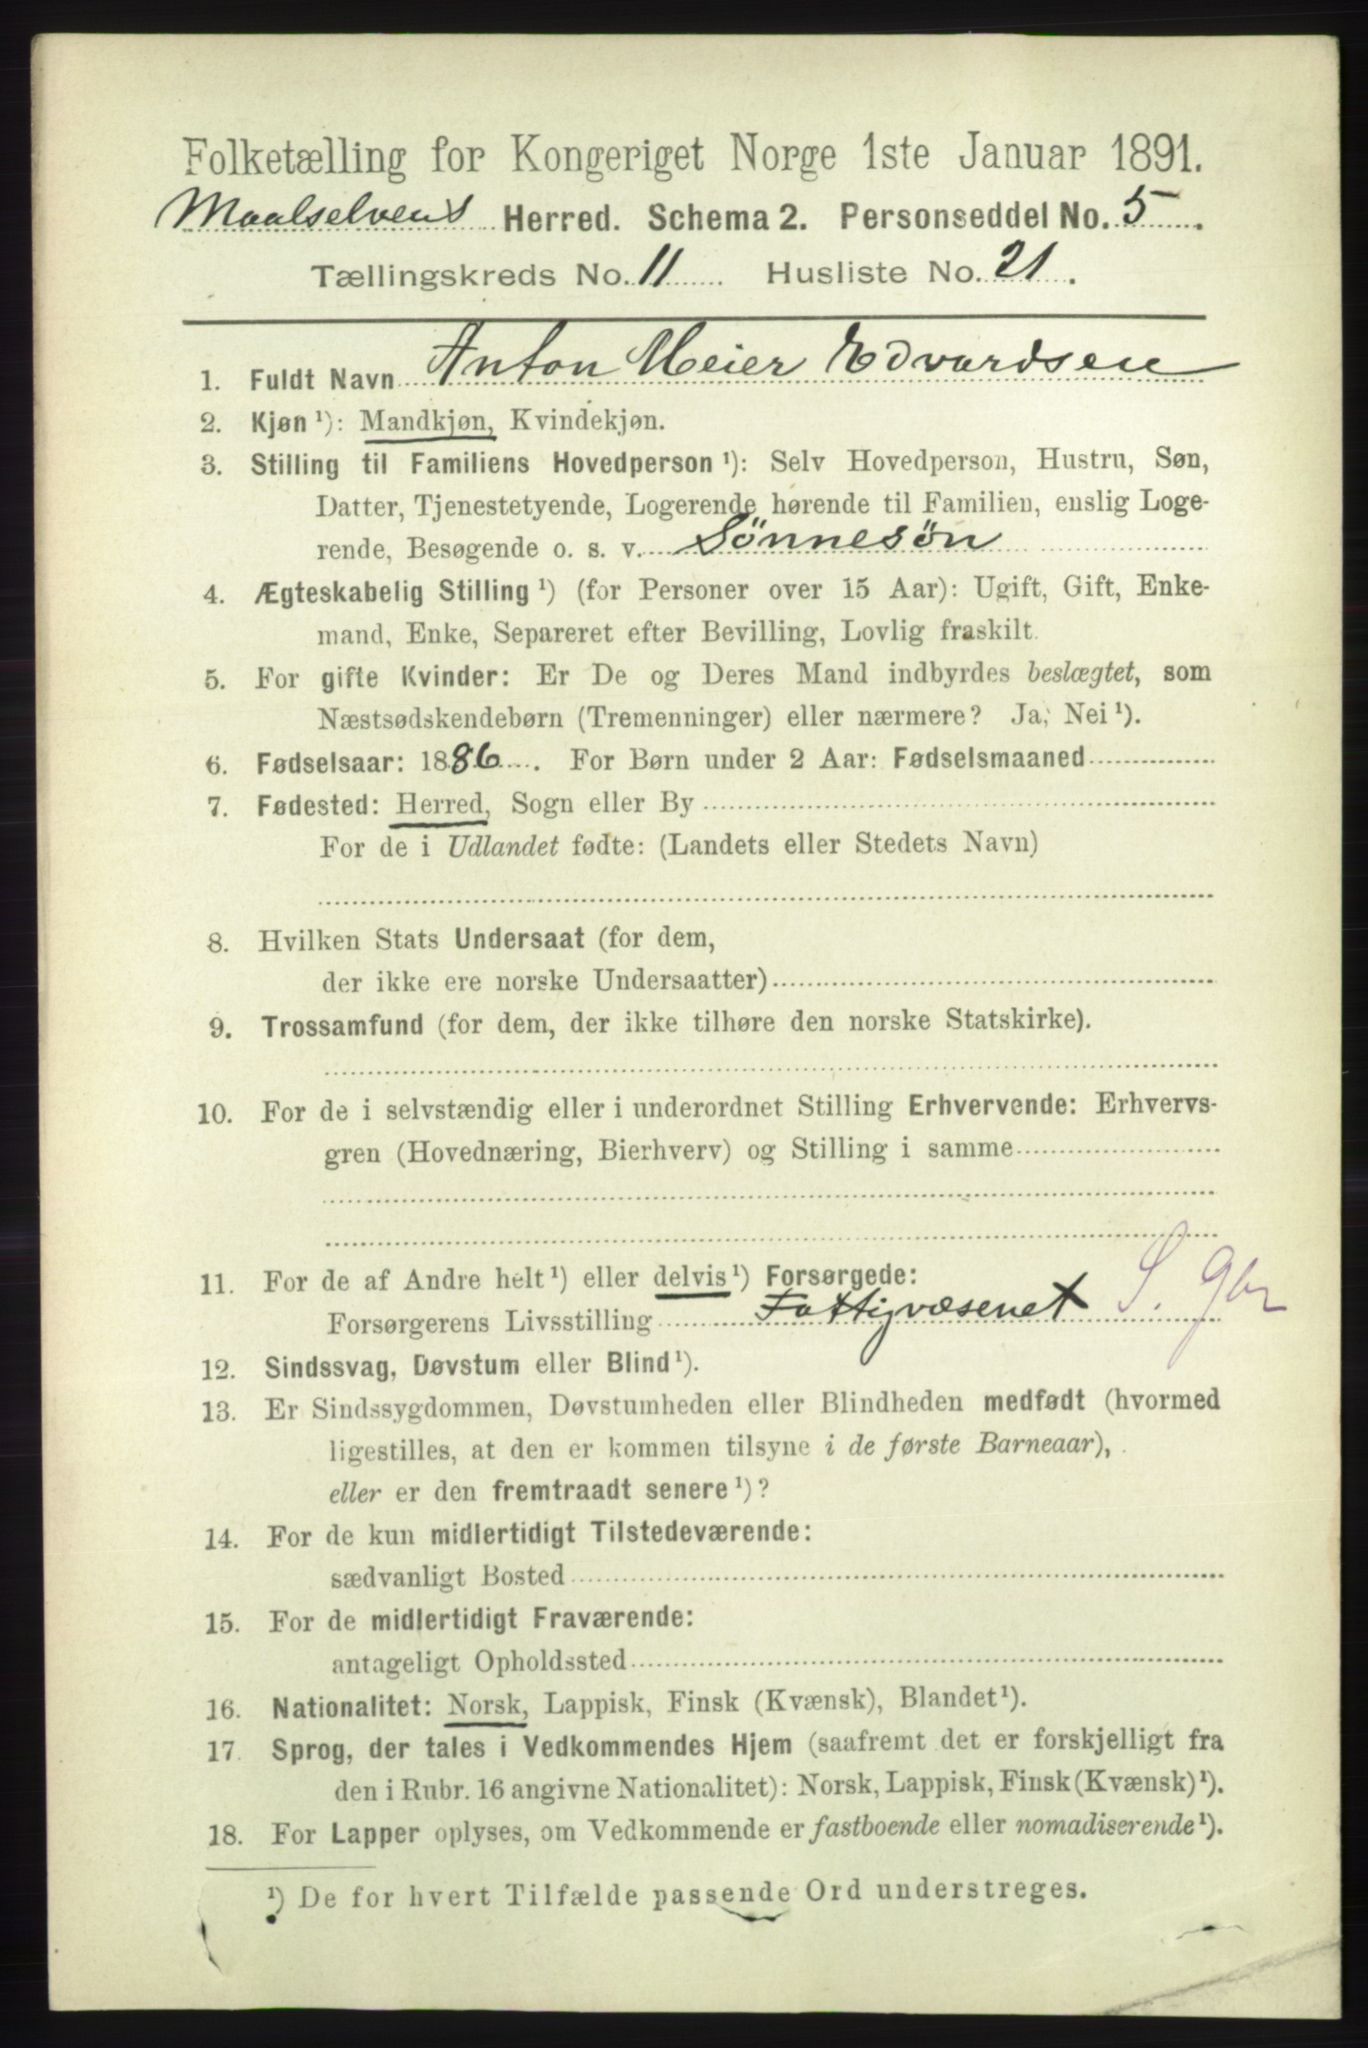 Folketælling for Kongeriget Norge 1ste Januar 1891.
Maalselvens Herred. Schema 2. Personseddel No. 5.
Tællingskreds No. 11 Husliste No. 21.
1. Fuldt Navn Anton Meier Edvardsen
2. Kjøn ¹): Mandkjøn, Kvindekjøn.
3. Stilling til Familiens Hovedperson ¹): Selv Hovedperson, Hustru, Søn,
Datter, Tjenestetyende, Logerende hørende til Familien, enslig Loge-
rende, Besøgende o. s. v. Sønnesøn
4. Ægteskabelig Stilling ¹) (for Personer over 15 Aar): Ugift, Gift, Enke-
mand, Enke, Separeret efter Bevilling, Lovlig fraskilt.
5. For gifte Kvinder: Er De og Deres Mand indbyrdes beslægtet, som
Næstsødskendebørn (Tremenninger) eller nærmere? Ja, Nei ¹).
6. Fødselsaar: 1886. For Børn under 2 Aar: Fødselsmaaned
7. Fødested: Herred, Sogn eller By
For de i Udlandet fødte: (Landets eller Stedets Navn)
8. Hvilken Stats Undersaat (for dem,
der ikke ere norske Undersaatter)
9. Trossamfund (for dem, der ikke tilhøre den norske Statskirke).
10. For de i selvstændig eller i underordnet Stilling Erhvervende: Erhvervs-
gren (Hovednæring, Bierhverv) og Stilling i samme
11. For de af Andre helt ¹) eller delvis ¹) Forsørgede:
Forsørgerens Livsstilling Fattigvæsenet S.
12. Sindssvag, Døvstum eller Blind ¹).
13. Er Sindssygdommen, Døvstumheden eller Blindheden medfødt (hvormed
ligestilles, at den er kommen tilsyne i de første Barneaar),
eller er den fremtraadt senere ¹)?
14. For de kun midlertidigt Tilstedeværende:
sædvanligt Bosted
15. For de midlertidigt Fraværende:
antageligt Opholdssted
16. Nationalitet: Norsk, Lappisk, Finsk (Kvænsk), Blandet ¹).
17. Sprog, der tales i Vedkommendes Hjem (saafremt det er forskjelligt fra
den i Rubr. 16 angivne Nationalitet): Norsk, Lappisk, Finsk (Kvænsk) ¹).
18. For Lapper oplyses, om Vedkommende er fastboende eller nomadiserende ¹).
¹) De for hvert Tilfælde passende Ord understreges.